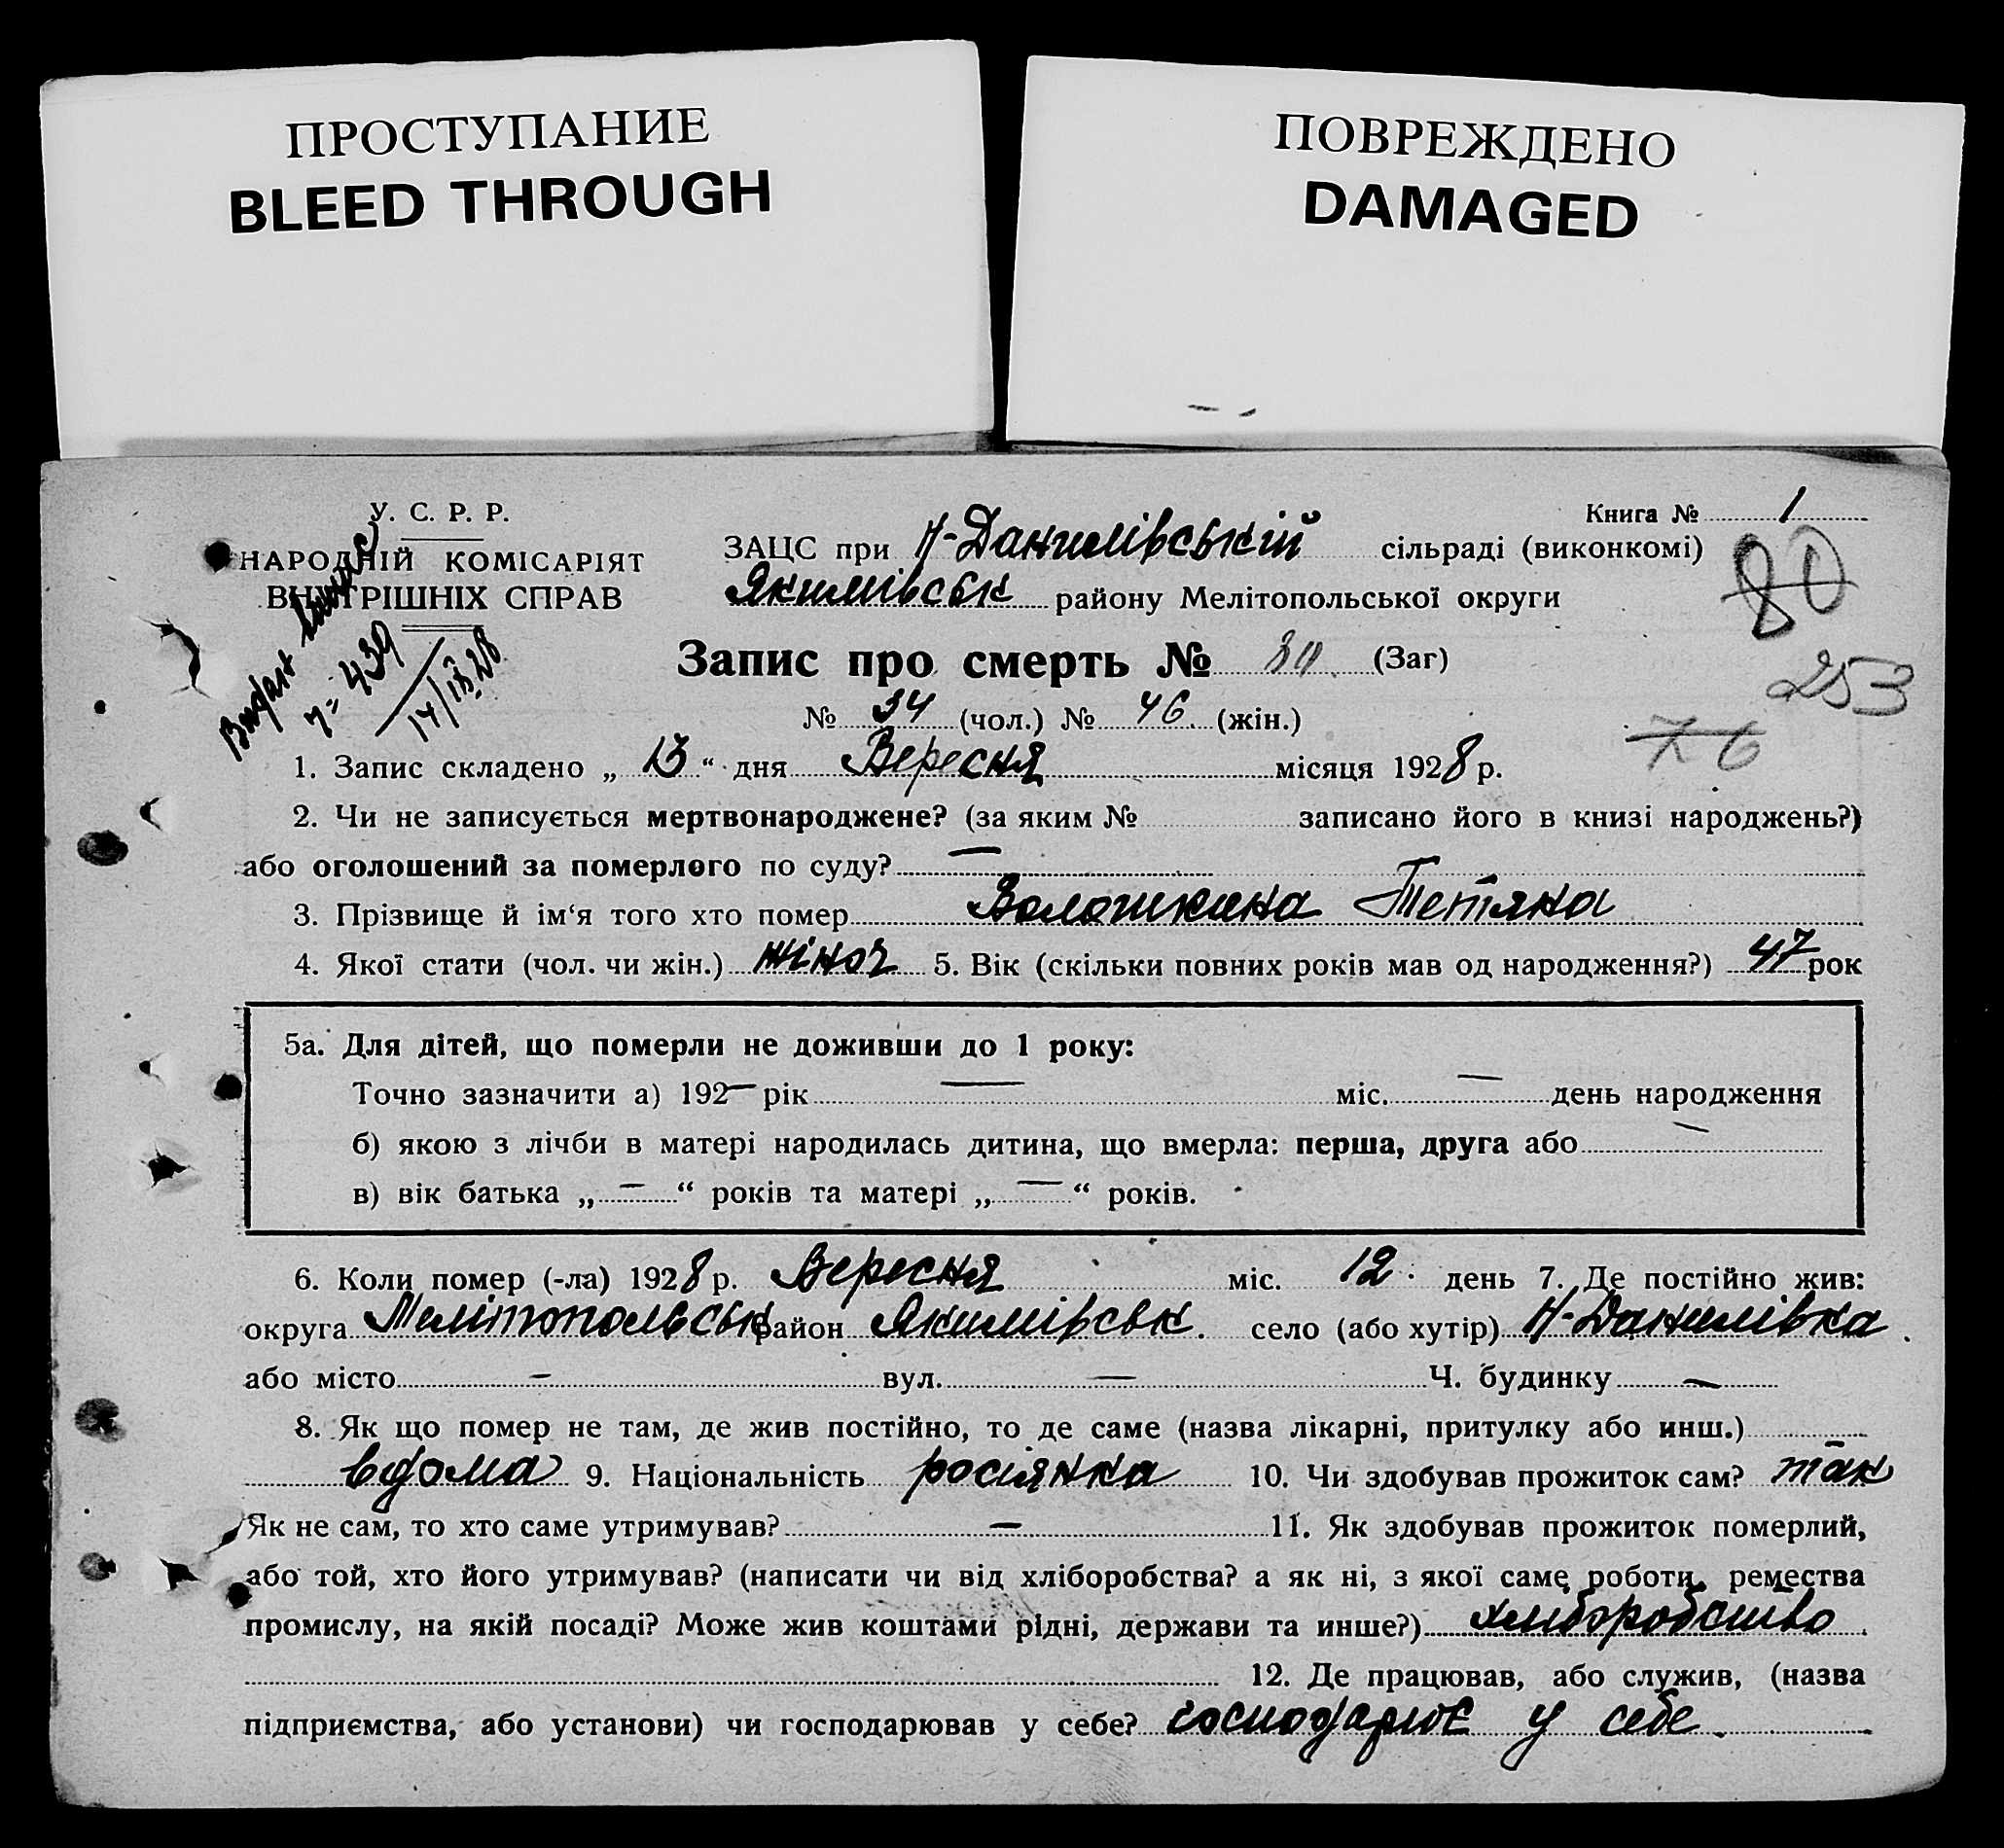 ПРОСТУПАНИЕ
BLEED THROUGH
ПОВРЕЖДЕНО
DAMAGED
У. С. Р. Р.
НАРОДНІЙ КОМІСАРІЯТ
ВНУТРІШНІХ СПРАВ
Книга № 1
ЗАЦС при Н-Данилівській сільраді (виконкомі)
Якимівськ району Мелітопольської округи
80
253
76
Видан
№ 439
14/IX 28
Запис про смерть № 80 (Заг)
№ 34 (чол.) № 46. (жін.)
1. Запис складено „ 13 “ дня Вересня місяця 1928 р.
2. Чи не записується мертвонароджене? (за яким № записано його в книзі народжень?)
або оголошений за померлого по суду? —
3. Прізвище й ім‘я того хто помер Волошкина Тетяна
4. Якої стати (чол. чи жін.) жіноч 5. Вік (скільки повних років мав од народження?) 47 рок
5а. Для дітей, що померли не доживши до 1 року:
Точно зазначити а) 192— рік — міс. — день народження
б) якою з лічби в матері народилась дитина, що вмерла: перша, друга або —
в) вік батька „ — “ років та матері „ — “ років.
6. Коли помер (-ла) 1928 р. Вересня міс. 12 день 7. Де постійно жив:
округа Мелітопольськ район Якимівськ. село (або хутір) Н-Данилівка.
або місто — вул. — Ч. будинку —
8. Як що помер не там, де жив постійно, то де саме (назва лікарні, притулку або инш.) —
вдома 9. Національність росіянка 10. Чи здобував прожиток сам? так
Як не сам, то хто саме утримував? — 11. Як здобував прожиток померлий,
або той, хто його утримував? (написати чи від хліборобства? а як ні, з якої саме роботи, ремества
промислу, на якій посаді? Може жив коштами рідні, держави та инше?) хліборобство
12. Де працював, або служив, (назва
підприємства, або установи) чи господарював у себе? господарює у себе.